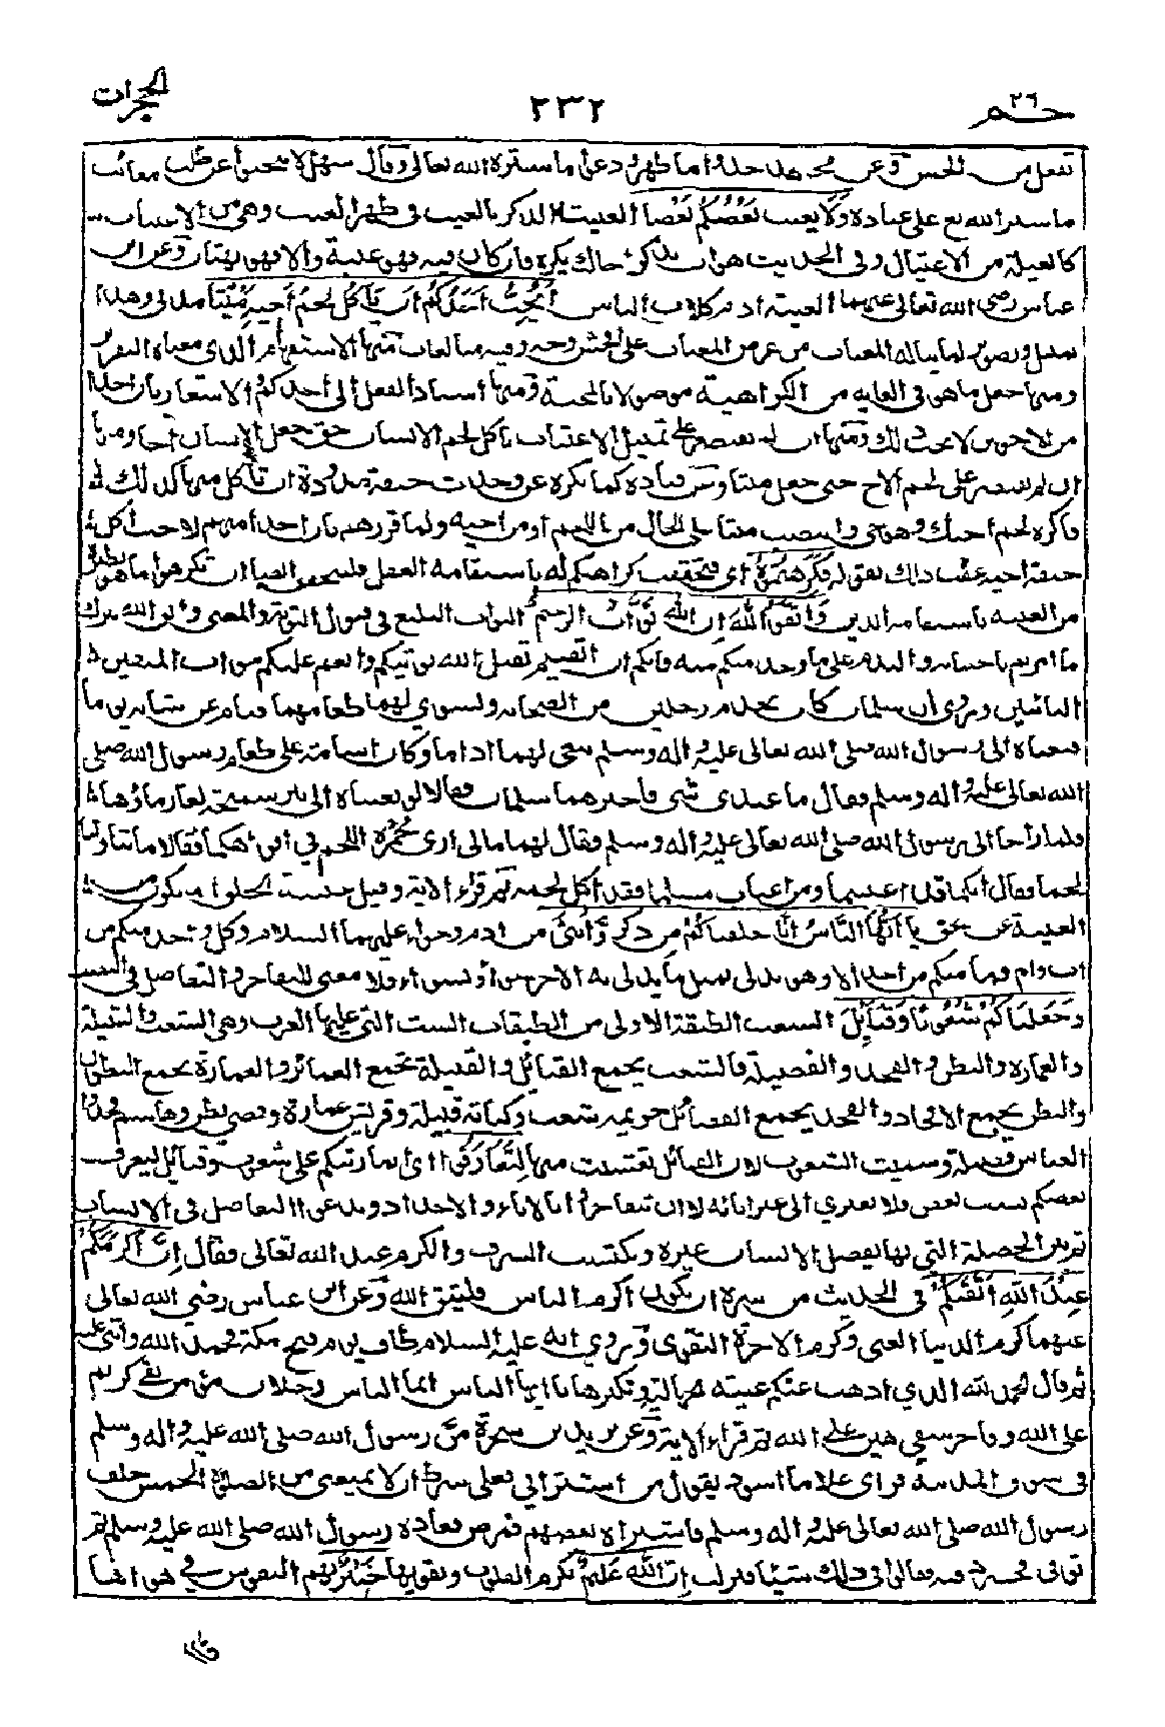 حم ٢٦
٢٣٢
الحجرات
تفعل من الحس وعن مجاهد خذوا ما ظهر ودعوا ما ستره الله تعالى وقال سهل لا تبحثوا عن طلب معائب
ما ستر الله تع على عباده ولا يغتب بعضكم بعضا الغيبة الذكر بالعيب في ظهر الغيب وهي من الاغتياب
كالغيلة من الاغتيال وفي الحديث هو ان تذكر اخاك بما يكره فان كان فيه فهو غيبة والا فهو بهتان وعن ابن
عباس رضي الله تعالى عنهما الغيبة ادام كلاب الناس أيحب أحدكم أن يأكل لحم أخيه ميتا
تمثيل وتصوير لما يناله المغتاب من عرض المغتاب على افحش وجه وفيه مبالغات منها الاستفهام الذي معناه التقرير
ومنها جعل ما هو في الغاية من الكراهية موصولا بالمحبة ومنها اسناد الفعل الى احدكم والاشعار بان احدا
من الاخوين لا يحب ذلك ومنها ان لم يقتصر على تمثيل الاغتياب باكل لحم الانسان حتى جعل الانسان اخا ومنها
ان لم يقتصر على لحم الاخ حتى جعل ميتا وعن قتادة كما تكره ان وجدت جيفة مدودة ان تأكل منها كذلك
فاكره لحم اخيك وهو حي وانتصب ميتا على الحال من اللحم او من اخيه ولما قررهم بان احدا منهم لا يحب اكل
جيفة اخيه عقب ذلك بقوله فكرهتموه اي فتحققت كراهتكم له باستقامة العقل فليتحقق ايضا ان تكرهوا ما هو نظيره
من الغيبة باستقامة الدين واتقوا الله إن الله تواب الرحيم التواب البليغ في قبول التوبة والمعنى واتقوا الله بترك
ما امرتم باجتنابه والندم على ما وجد منكم منه فانكم ان اتقيتم تقبل الله توبتكم وانعم عليكم بثواب المتقين
التائبين وروي ان سلمان كان يخدم رجلين من الصحابة ويسوي لهما طعامهما فنام عن شانه يوما
فبعثاه الى رسول الله صلى الله تعالى عليه واله وسلم يبغي لهما اداما وكان اسامة على طعام رسول الله صلى
الله تعالى عليه واله وسلم فقال ما عندي شي فاخبرهما سلمان فقالا لو بعثناه الى بئر سميحة لغار ماؤها
فلما راحا الى رسول الله صلى الله تعالى عليه واله وسلم فقال لهما ما لي ارى حمرة اللحم في افواهكما فقالا ما تناولنا
لحما فقال انكما قد اغتبتما ومن اغتاب مسلما فقد اكل لحمه ثم قراء الاية وقيل
الغيبة يا أيها الناس إنا خلقناكم من ذكر وأنثى من ادم وحواء عليهما السلام وكل واحد منكم من
اب وام فما منكم من احد الا وهو يدلي بمثل ما يدلي به الاخر سواء بسواء ولا معنى للتفاخر والتفاضل في النسب
وجعلناكم شعوبا وقبائل الشعب الطبقة الاولى من الطبقات الست التي عليها العرب وهي الشعب والقبيلة
والعمارة والبطن والفخذ والفصيلة فالشعب يجمع القبائل والقبيلة تجمع العمائر والعمارة يجمع البطون
والبطن يجمع الافخاذ والفخذ يجمع الفصائل خزيمة شعب وكنانة قبيلة وقريش عمارة وقصي بطن وهاشم فخذ
العباس فصيلة وسميت الشعوب لان القبائل تشعبت منها لتعارفوا اي انما رتبكم على شعوب وقبائل ليعرف
بعضكم نسب بعض فلا يعتزي الى غير ابائه لا ان تتفاخروا بالاباء والاجداد وتدعوا التفاضل في الانساب
ثم بين الخصلة التي بها يفضل الانسان غيره ويكتسب الشرف والكرم عند الله تعالى فقال إن أكرمكم
عند الله أتقيكم في الحديث من سره ان يكون اكرم الناس فليتق الله وعن ابن عباس رضي الله تعالى
عنهما كرم الدنيا الغنى وكرم الاخرة التقوى وروي انه عليه السلام طاف يوم فتح مكة فحمد الله واثنى عليه
ثم قال الحمد لله الذي اذهب عنكم عبية الجاهلية وتكبرها يا ايها الناس انما الناس رجلان مؤمن تقي كريم
على الله وفاجر شقي هين على الله ثم قراء الاية وعن يزيد بن شجرة مر رسول الله صلى الله عليه واله وسلم
في سوق المدينة فراى غلاما اسود يقول من اشتراني فعلى شرط ان لا يمنعني من الصلوة الخمس خلف
رسول الله صلى الله تعالى عليه واله وسلم فاشتراه بعضهم فمرض فعاده رسول الله صلى الله عليه وسلم ثم
توفي فحضر دفنه فقالوا في ذلك شيئا فنزلت إن الله عليم بكرم القلوب وتقويها خبير بهم النفوس في هواها